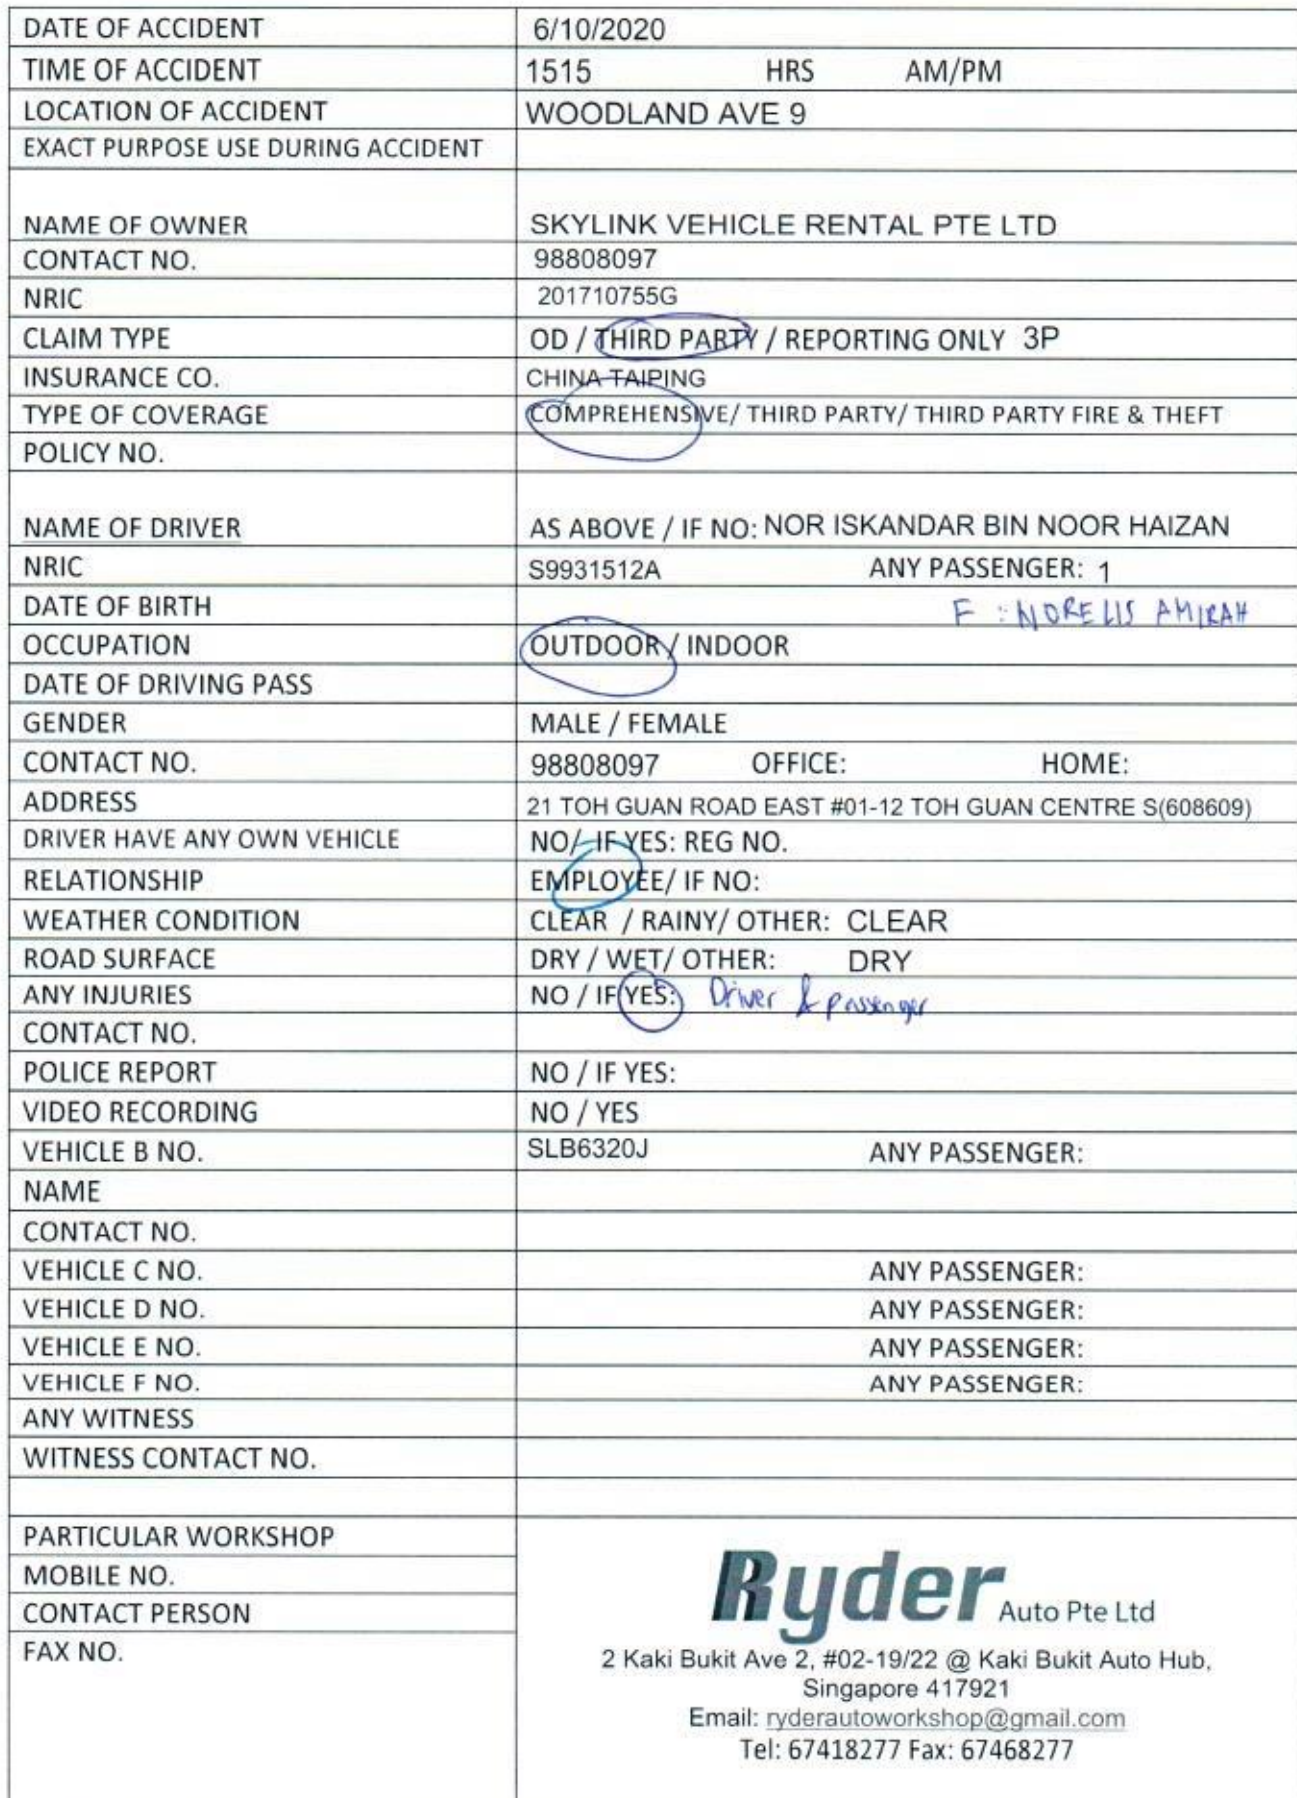 DATE OF ACCIDENT 6/10/2020
TIME OF ACCIDENT 1515 HRS AM/PM
LOCATION OF ACCIDENT WOODLAND AVE 9
EXACT PURPOSE USE DURING ACCIDENT
NAME OF OWNER SKYLINK VEHICLE RENTAL PTE LTD
CONTACT NO. 98808097
NRIC 201710755G
CLAIM TYPE OD / THIRD PARTY / REPORTING ONLY 3P
INSURANCE CO. CHINA TAIPING
TYPE OF COVERAGE COMPREHENSIVE/ THIRD PARTY/ THIRD PARTY FIRE & THEFT
POLICY NO.
NAME OF DRIVER AS ABOVE / IF NO: NOR ISKANDAR BIN NOOR HAIZAN
NRIC S9931512A ANY PASSENGER: 1
DATE OF BIRTH F : NORELIS AMIRAH
OCCUPATION OUTDOOR / INDOOR
DATE OF DRIVING PASS
GENDER MALE / FEMALE
CONTACT NO. 98808097 OFFICE: HOME:
ADDRESS 21 TOH GUAN ROAD EAST #01-12 TOH GUAN CENTRE S(608609)
DRIVER HAVE ANY OWN VEHICLE NO/ IF YES: REG NO.
RELATIONSHIP EMPLOYEE/ IF NO:
WEATHER CONDITION CLEAR / RAINY/ OTHER: CLEAR
ROAD SURFACE DRY / WET/ OTHER: DRY
ANY INJURIES NO / IF YES: Driver & passenger
CONTACT NO.
POLICE REPORT NO / IF YES:
VIDEO RECORDING NO / YES
VEHICLE B NO. SLB6320J ANY PASSENGER:
NAME
CONTACT NO.
VEHICLE C NO. ANY PASSENGER:
VEHICLE D NO. ANY PASSENGER:
VEHICLE E NO. ANY PASSENGER:
VEHICLE F NO. ANY PASSENGER:
ANY WITNESS
WITNESS CONTACT NO.
PARTICULAR WORKSHOP
MOBILE NO.
CONTACT PERSON
FAX NO.
Ryder Auto Pte Ltd
2 Kaki Bukit Ave 2, #02-19/22 @ Kaki Bukit Auto Hub,
Singapore 417921
Email: ryderautoworkshop@gmail.com
Tel: 67418277 Fax: 67468277